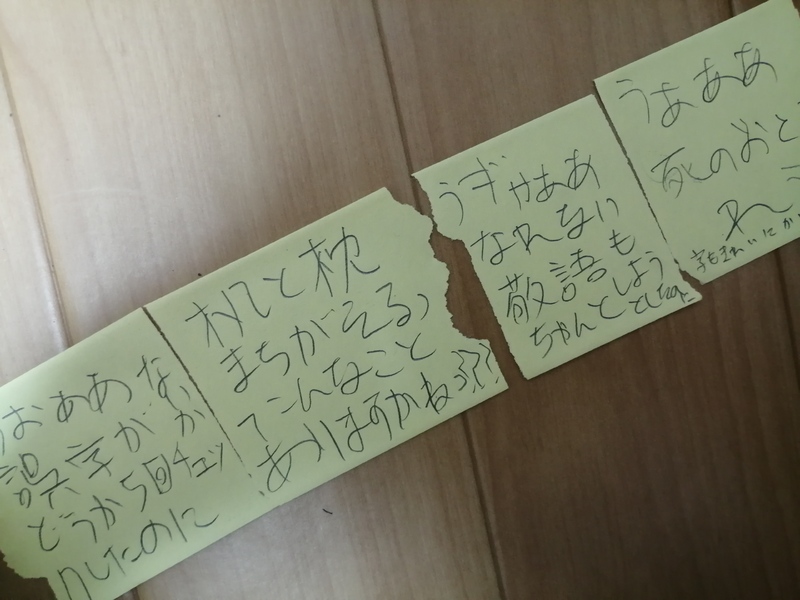 うおぉああな
誤字がないか
どうか5回チェッ
クしたのに
机と枕
まちがえるっ
てこんなこと
ありますかね???
うぎゃああ
なれない
敬語も
ちゃんとしよう
としたのに
うあああ
死のおと
ずれ
字もきれいにか